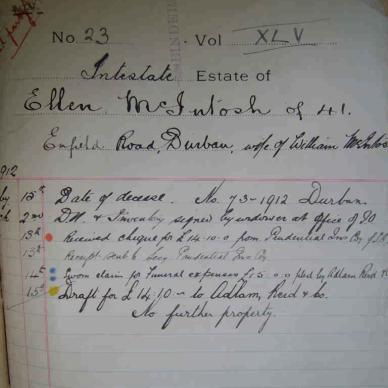 No. 23 Vol XLV
Intestate Estate of
Ellen McIntosh of 41.
Enfield Road, Durban, wife of William McIntos
1912
15th Date of decease. No. 73-1912 Durban
2nd D.N. & Inventory signed by widower at office of
13th Received cheque for £14-10-0 from Prudential Ins Coy of
13th Receipt sent to Secy Prudential Ins Coy
14th Sworn claim for funeral expenses £15.0.0 filed by Adlam Reid &
15th Draft for £14:10 - to Adlam, Reid & Co.
No further property.